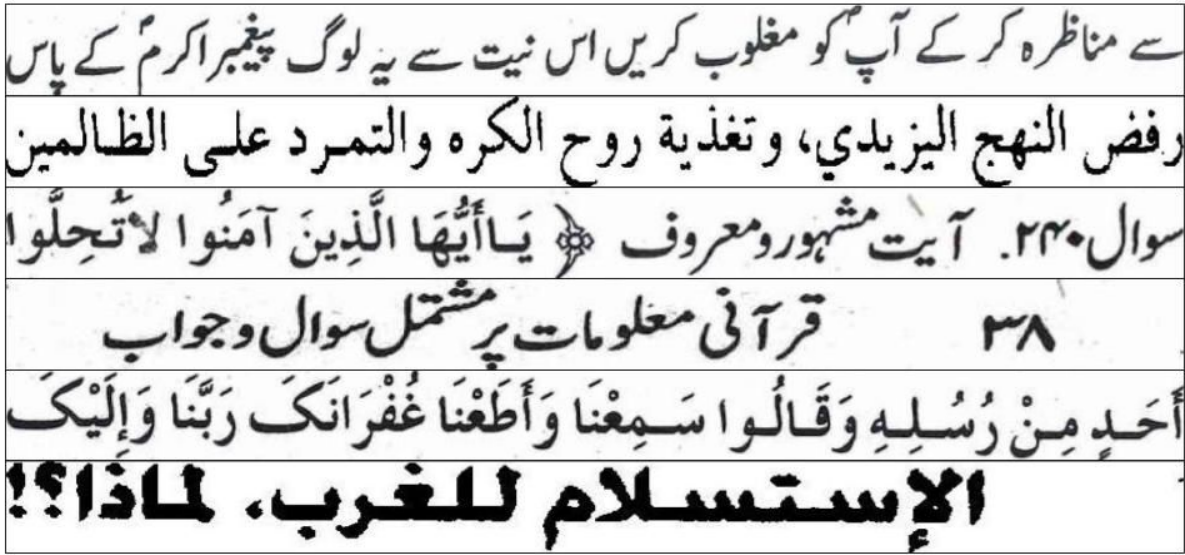 سے مناظرہ کر کے آپؐ کو مغلوب کریں اس نیت سے یہ لوگ پیغمبر اکرمؐ کے پاس
رفض النهج اليزيدي، وتغذية روح الكره والتمرد على الظالمين
سوال ۲۴۰. آیت مشہور و معروف ﴿ يَاأَيُّهَا الَّذِينَ آمَنُوا لاَ تُحِلُّوا
۳۸ قرآنی معلومات پر مشتمل سوال و جواب
أَحَدٍ مِنْ رُسُلِهِ وَقَالُوا سَمِعْنَا وَأَطَعْنَا غُفْرَانَکَ رَبَّنَا وَإِلَيْکَ
الإستسلام للغرب. لماذا؟!